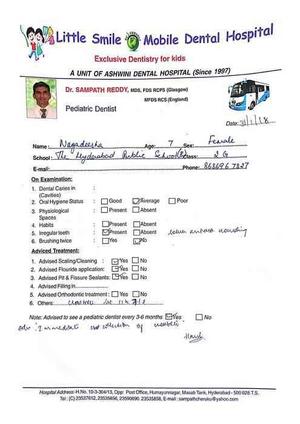 Little Smile Mobile Dental Hospital
Exclusive Dentistry for kids
A UNIT OF ASHWINI DENTAL HOSPITAL (Since 1997)
Dr. SAMPATH REDDY, MDS, FDS RCPS (Glasgow)
MFDS RCS (England)
Pediatric Dentist
Date:
Name: Nagadeesha Age: 7 Sex: Female
School: The Hyderabad Public School Class: 2 G
E-mail: Phone:
On Examination:
1. Dental Caries in :
(Cavities)
2. Oral Hygiene Status : Good Average Poor
3. Physiological : Present Absent
Spaces
4. Habits : Present Absent
5. Irregular teeth : Present Absent
6. Brushing twice : Yes No
Adviced Treatment:
1. Advised Scaling/Cleaning : Yes No
2. Advised Flouride application: Yes No
3. Advised Pit & Fissure Sealants: Yes No
4. Advised Filling in
5. Advised Orthodontic treatment : Yes No
6. Others:
Note: Advised to see a pediatric dentist every 3-6 months Yes No
Hospital Address: H.No. 10-3-304/13, Opp: Post Office, Humayunnagar, Masab Tank, Hyderabad - 500 028 T.S.
Tel: (C) 23537612, 23535656, 23590690, 23535858, E-mail : sampathcheruku@yahoo.com